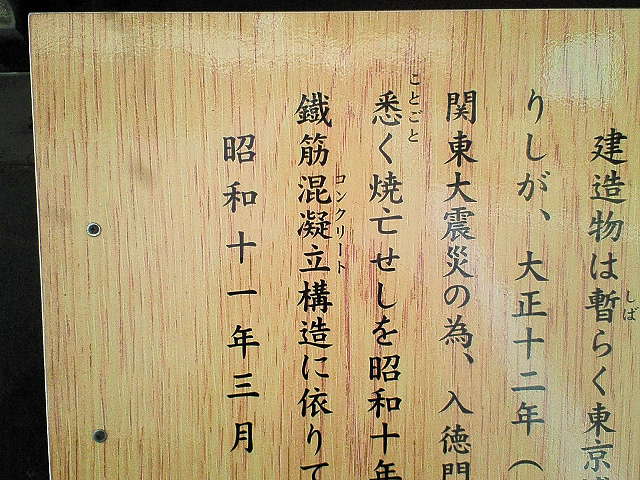 建造物は暫らく東京
しば
りしが、大正十二年（
関東大震災の為、入徳門
悉く焼亡せしを昭和十年
ことごと
鐵筋混凝立構造に依りて
コンクリート
昭和十一年三月